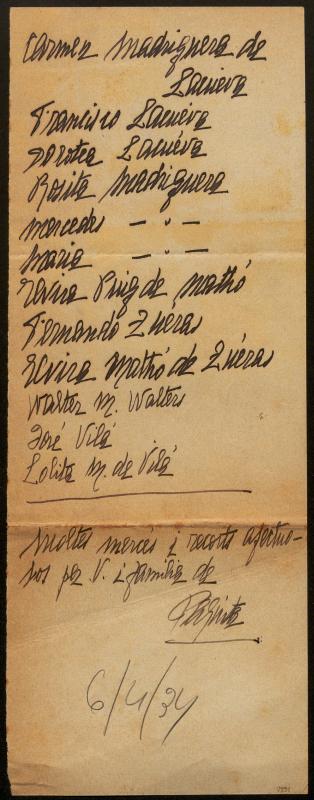 Carmen Madriguera de
Lacueva
Francisco Lacuéva
Dorotea Lacuéva
Rosita Madriguera
Mercedes — " —
Maria — " —
Elvira Puig de Mathó
Fernando Zueras
Elvira Mathó de Zuéras
Walter M. Walters
José Vilá
Lolita M. de Vilá
Moltes mercès i recorts afectuo-
sos per V. i familia de
Paquita
6/4/34